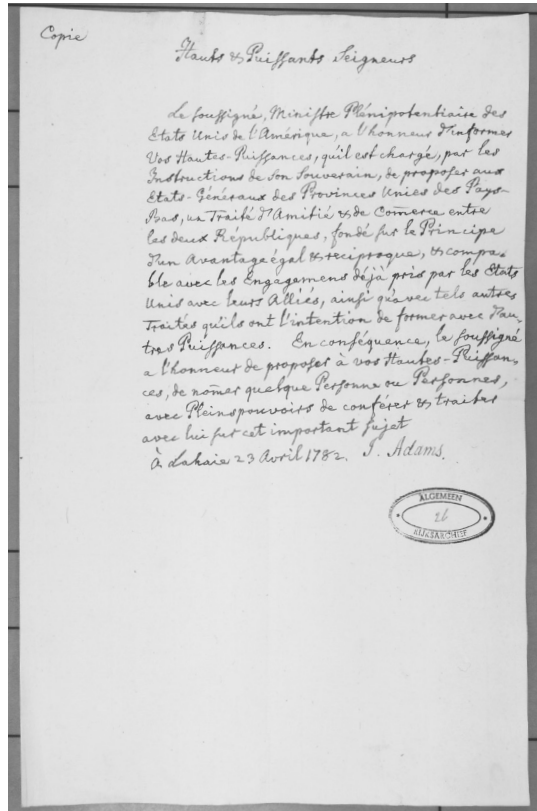 Copie
Hauts & Puissants Seigneurs
Le soussigné, Ministre Plénipotentiaire des
Etats Unis de l'Amérique, a l'honneur d'informer
Vos Hautes-Puissances, qu'il est chargé, par les
Instructions de son Souverain, de proposer aux
Etats-Généraux des Provinces Unies des Pays-
Bas, un Traité d'Amitié & de Com̄erce entre
les deux Républiques, fondé sur le Principe
d'un Avantage égal & réciproque, & compa-
ble avec les Engagemens déjà pris par les Etats
Unis avec leurs Alliés, ainsi qu'avec tels autres
Traités qu'ils ont l'intention de former avec d'au-
tres Puissances. En conséquence, le soussigné
a l'honneur de proposer à vos Hautes-Puissan-
ces, de nom̄er quelque Personne ou Personnes,
avec Pleinspouvoirs de conférer & traiter
avec lui sur cet important sujet
À Lahaie 23 Avril 1782. J. Adams.
ALGEMEEN
26
RIJKSARCHIEF